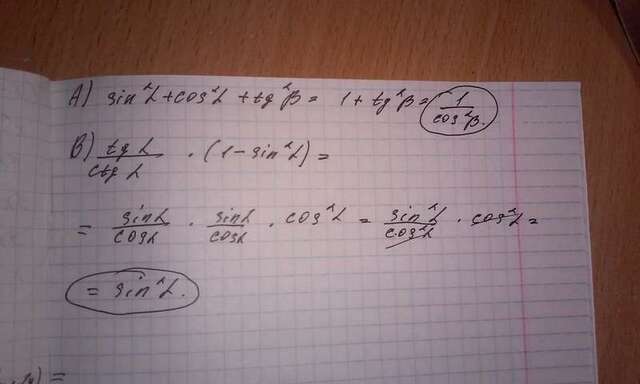 A) sin²α + cos²α + tg²β = 1 + tg²β = 1/cos²β.
B) tg α / ctg α · (1 - sin²α) =
= sinα/cosα · sinα/cosα · cos²α = sin²α/cos²α · cos²α =
= sin²α.